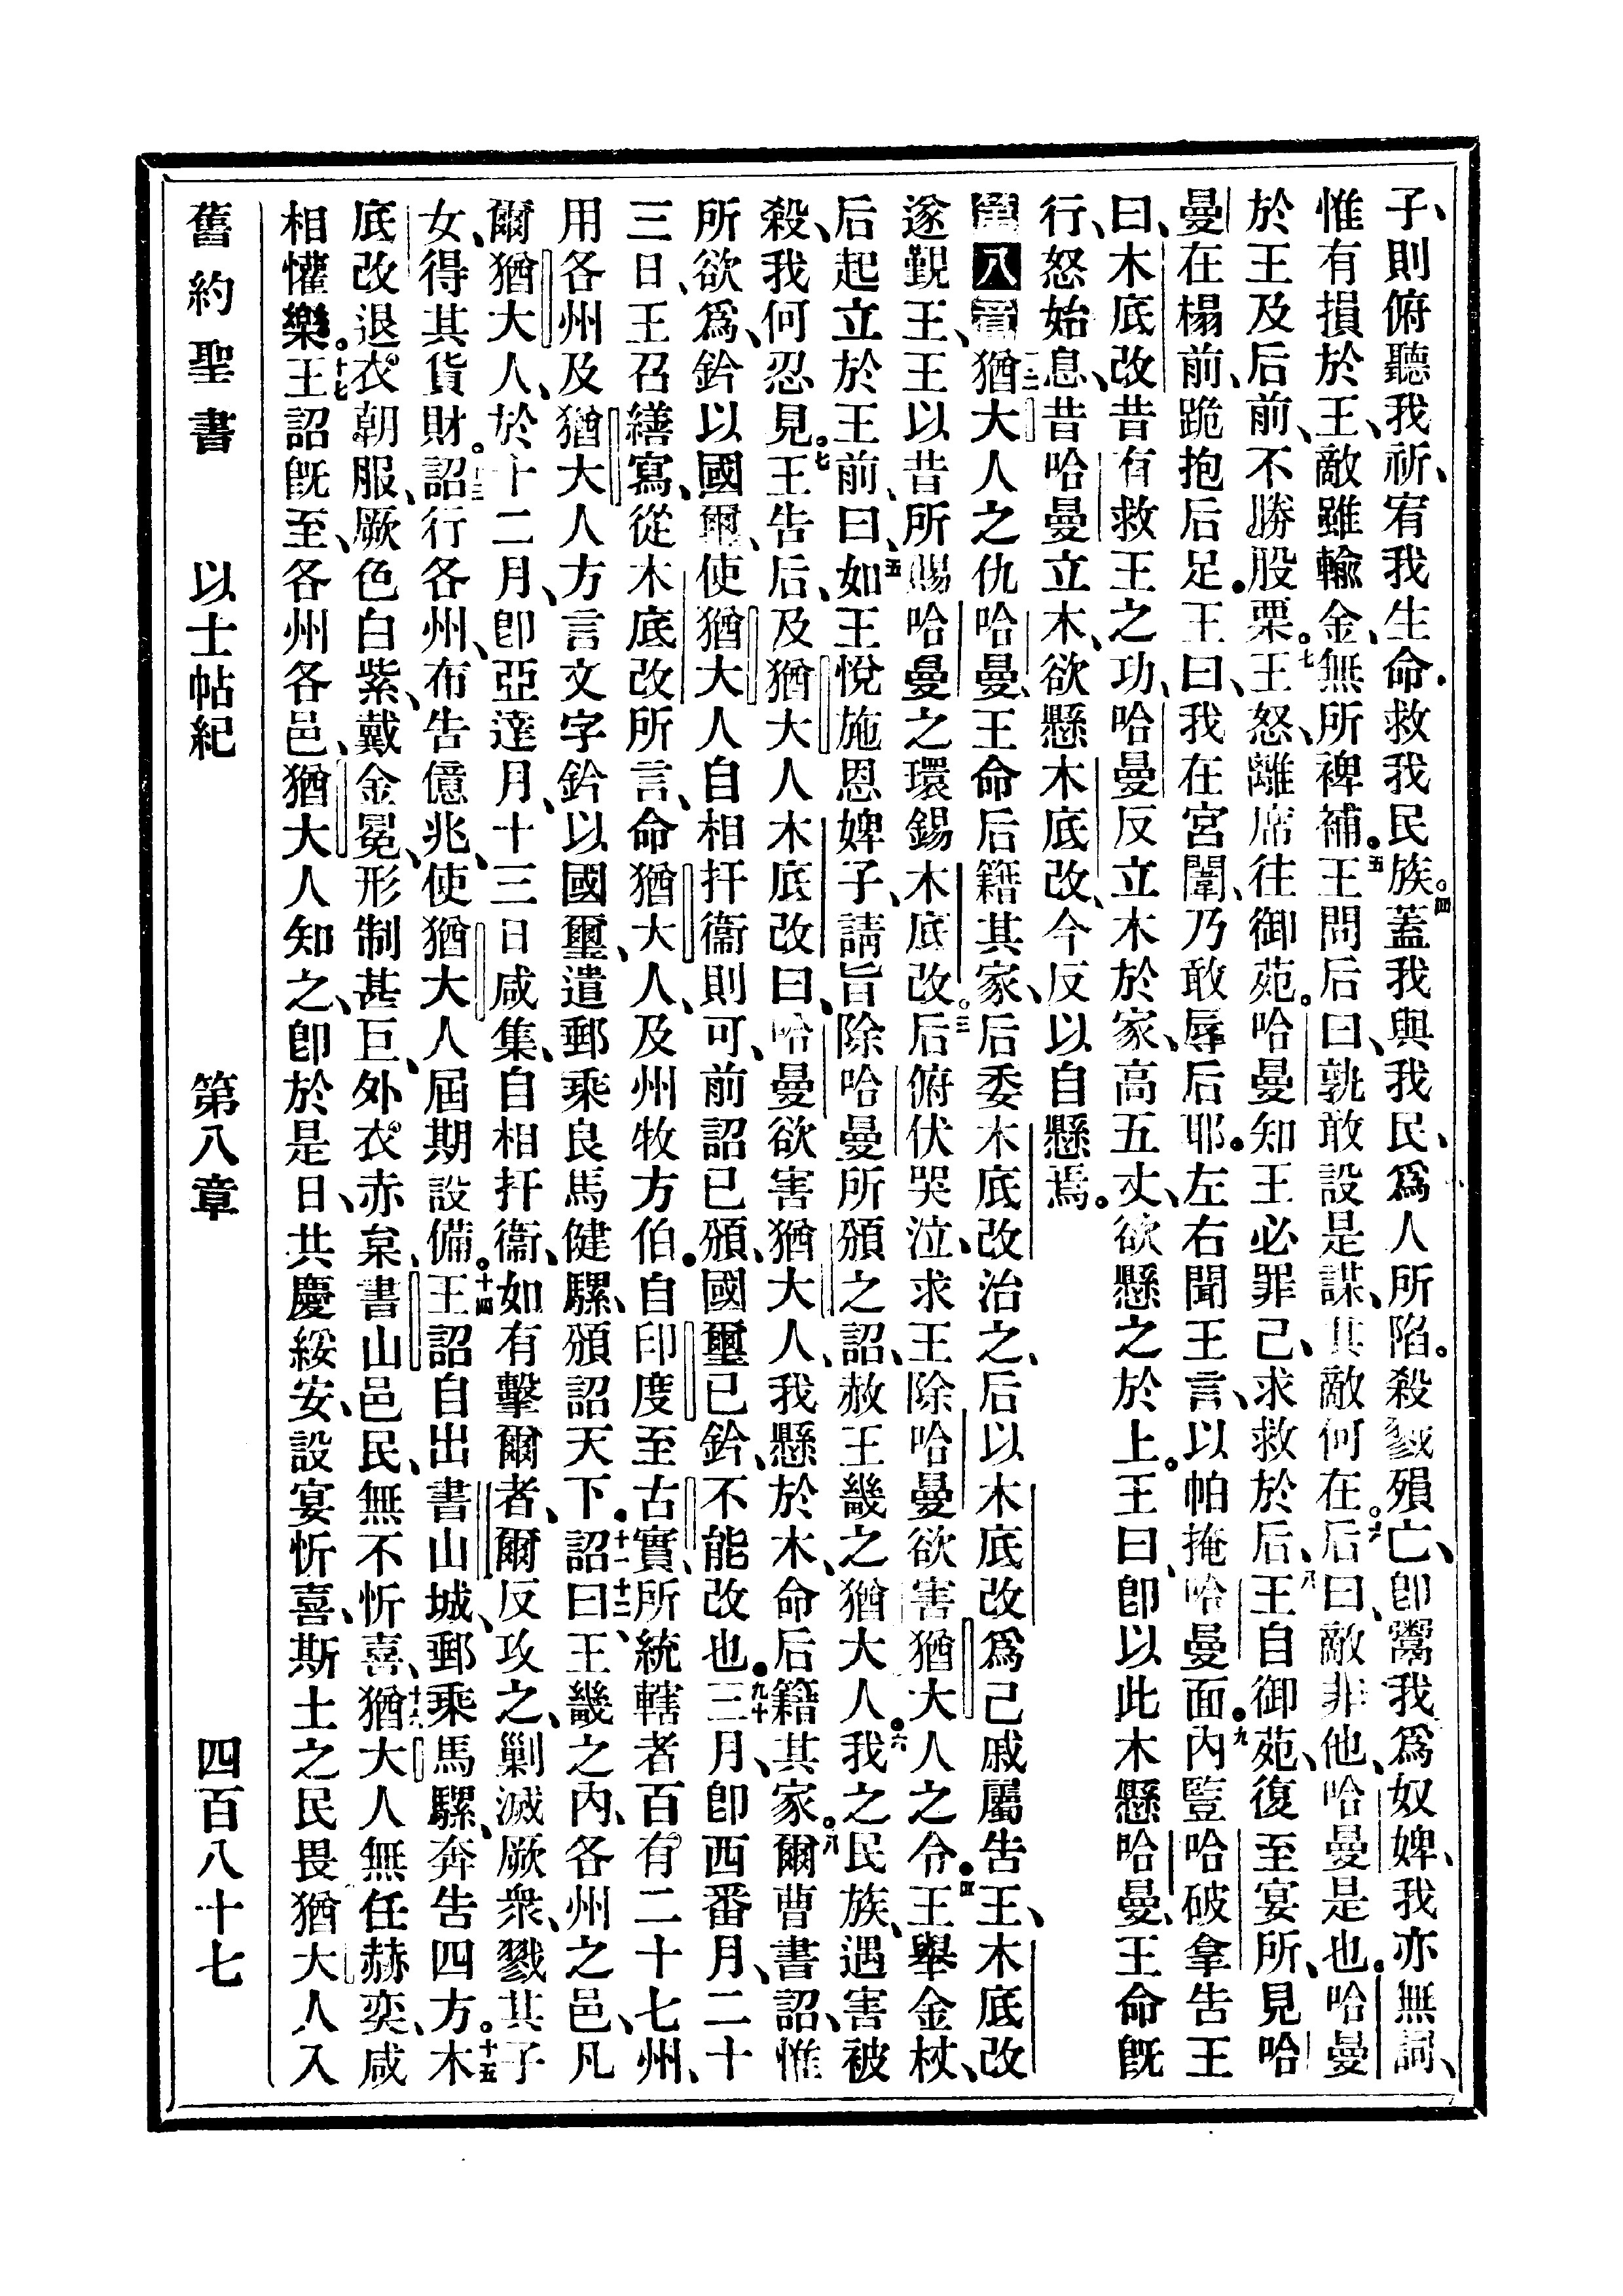 子、則俯聽我祈、宥我生命、救我民族。四蓋我與我民、爲人所陷。殺戮殞亡、卽鬻我爲奴婢、我亦無詞、
惟有損於王、敵雖輸金、無所裨補。五王問后曰、孰敢設是謀、其敵何在。六后曰、敵非他、哈曼是也。哈曼
於王及后前、不勝股栗。七王怒、離席往御苑。哈曼知王必罪己、求救於后、八王自御苑、復至宴所、見哈
曼在榻前、跪抱后足。王曰、我在宮闈、乃敢辱后耶。左右聞王言、以帕掩哈曼面。九內豎哈破拿告王
曰、木底改昔有救王之功、哈曼反立木於家、高五丈、欲懸之於上。王曰、卽以此木懸哈曼、王命旣
行、怒始息、昔哈曼立木、欲懸木底改、今反以自懸焉。
第八章一二猶大人之仇哈曼、王命后籍其家、后委木底改治之、后以木底改爲己戚屬告王、木底改
遂覲王、王以昔所賜哈曼之環錫木底改。三后俯伏哭泣、求王除哈曼欲害猶大人之令。四王舉金杖、
后起立於王前、曰、五如王悅施恩婢子、請旨除哈曼所頒之詔、赦王畿之猶大人。六我之民族、遇害被
殺、我何忍見。七王告后、及猶大人木底改曰、哈曼欲害猶大人、我懸於木、命后籍其家。八爾曹書詔、惟
所欲爲、鈐以國璽、使猶大人自相扞衞則可、前詔已頒、國璽已鈐、不能改也。九十三月、卽西番月、二十
三日、王召繕寫、從木底改所言、命猶大人、及州牧方伯。自印度至古實、所統轄者百有二十七州、
用各州及猶大人方言文字鈐以國璽、遣郵乘良馬健騾、頒詔天下。十一十二詔曰、王畿之內、各州之邑、凡
爾猶大人、於十二月、卽亞達月、十三日咸集、自相扞衞、如有擊爾者、爾反攻之、剿滅厥衆、戮其子
女、得其貨財。十三詔行各州、布告億兆、使猶大人屆期設備。十四王詔自出書山城、郵乘馬騾、奔告四方。十五木
底改退衣朝服、厥色白紫、戴金冕、形制甚巨、外衣赤枲、書山邑民、無不忻喜、十六猶大人無任赫奕、咸
相懽樂。十七王詔旣至、各州各邑、猶大人知之、卽於是日、共慶綏安、設宴忻喜、斯土之民畏猶大人入
舊約聖書 以士帖紀 第八章 四百八十七